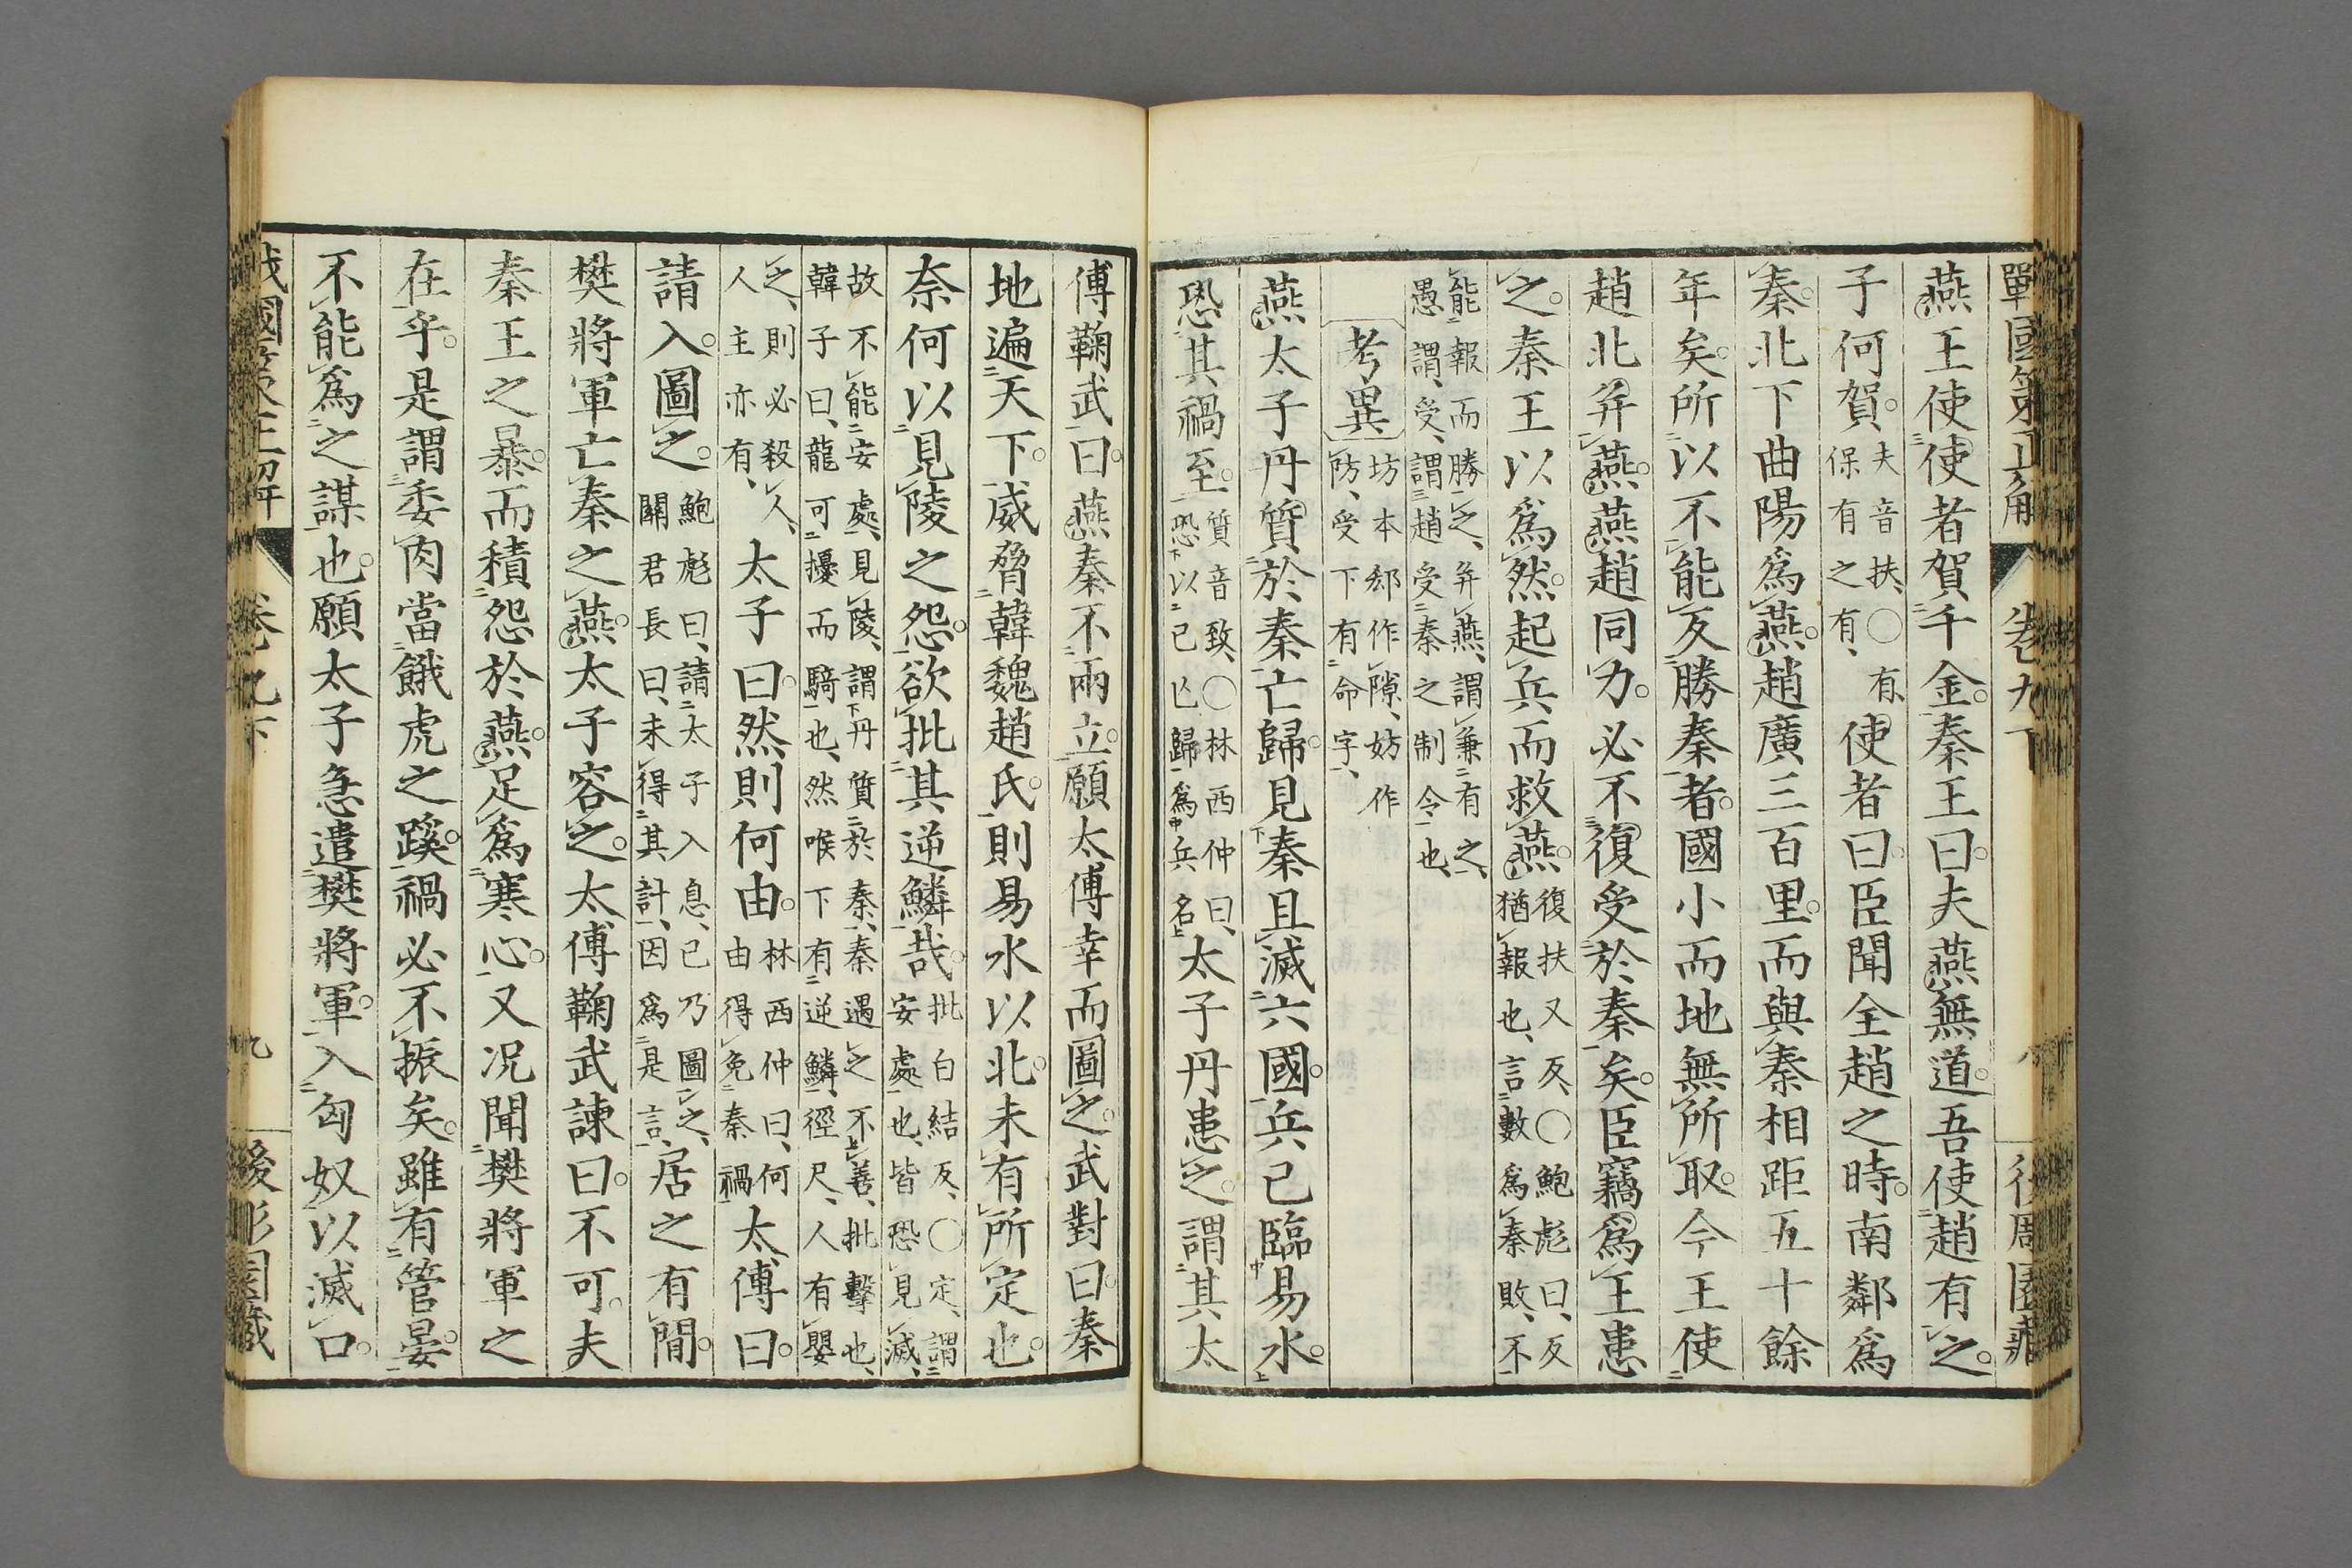 燕王使使者賀千金。秦王曰。夫燕無道。吾使趙有之。
子何賀。夫音扶、〇有、保有之有、使者曰。臣聞全趙之時。南鄰爲
秦。北下曲陽爲燕。趙廣三百里。而與秦相距五十餘
年矣。所以不能反勝秦者。國小而地無所取。今王使
趙北幷燕。燕趙同力。必不復受於秦矣。臣竊爲王患
之。秦王以爲然。起兵而救燕。復扶又反、〇鮑彪曰、反猶報也、言數爲秦敗、不
能報而勝之、幷燕、謂兼有之、愚謂、受、謂趙受秦之制令也、
考異 坊本郄作隙、妨作防、受下有命字、
燕太子丹質於秦。亡歸。見秦且滅六國。兵已臨易水。
恐其禍至。質音致、〇林西仲曰、恐以己亡歸爲兵名、太子丹患之。謂其太
傅鞠武曰。燕秦不兩立。願太傅幸而圖之。武對曰。秦
地遍天下。威脅韓魏趙氏。則易水以北。未有所定也。
奈何以見陵之怨。欲批其逆鱗哉。批白結反、〇定、謂安處也、皆恐見滅、
故不能安處、見陵、謂丹質於秦、秦遇之不善、批擊也、韓子曰、龍可擾而騎也、然喉下有逆鱗、徑尺、人有嬰
之、則必殺人、人主亦有、太子曰。然則何由。林西仲曰、何由得免秦禍、太傅曰。
請入。圖之。鮑彪曰、請太子入息、已乃圖之、關君長曰、未得其計、因爲是言、居之有閒。
樊將軍亡秦之燕。太子容之。太傅鞠武諫曰。不可。夫
秦王之暴。而積怨於燕。足爲寒心。又况聞樊將軍之
在乎。是謂委肉當餓虎之蹊。禍必不振矣。雖有管晏。
不能爲之謀也。願太子急遣樊將軍。入匈奴以滅口。
卷九下
九